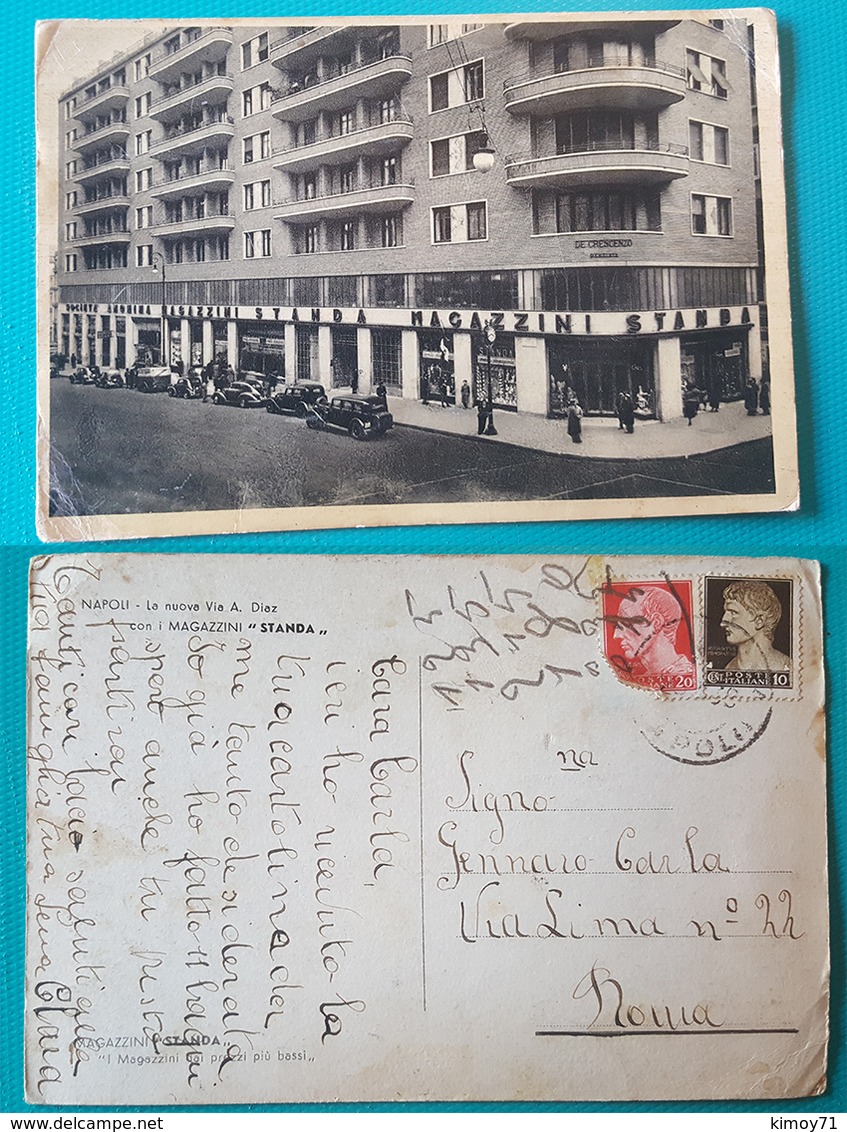 DE CRESCENZO
SOCIETÀ ANONIMA MAGAZZINI STANDA MAGAZZINI STANDA
NAPOLI - La nuova Via A. Diaz
con i MAGAZZINI "STANDA„
Cara Carla,
ieri ho ricevuto la
tua cartolina da
me tanto desiderata
Io già ho fatto 11 bagni
spero anche tu presto
partirai
Tanti cari baci saluti alla
tua famiglia tua Clara
POSTE
ITALIANE 20
POSTE
ITALIANE 10
NAPOLI
Signo na
Gennaro Carla
Via Lima nº 22
Roma
MAGAZZINI "STANDA„
"I Magazzini dai prezzi più bassi„
kimoy71